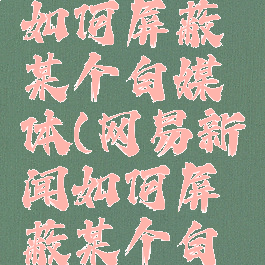 如何屏蔽
某个自媒
体(网易新
闻如何屏
蔽某个自